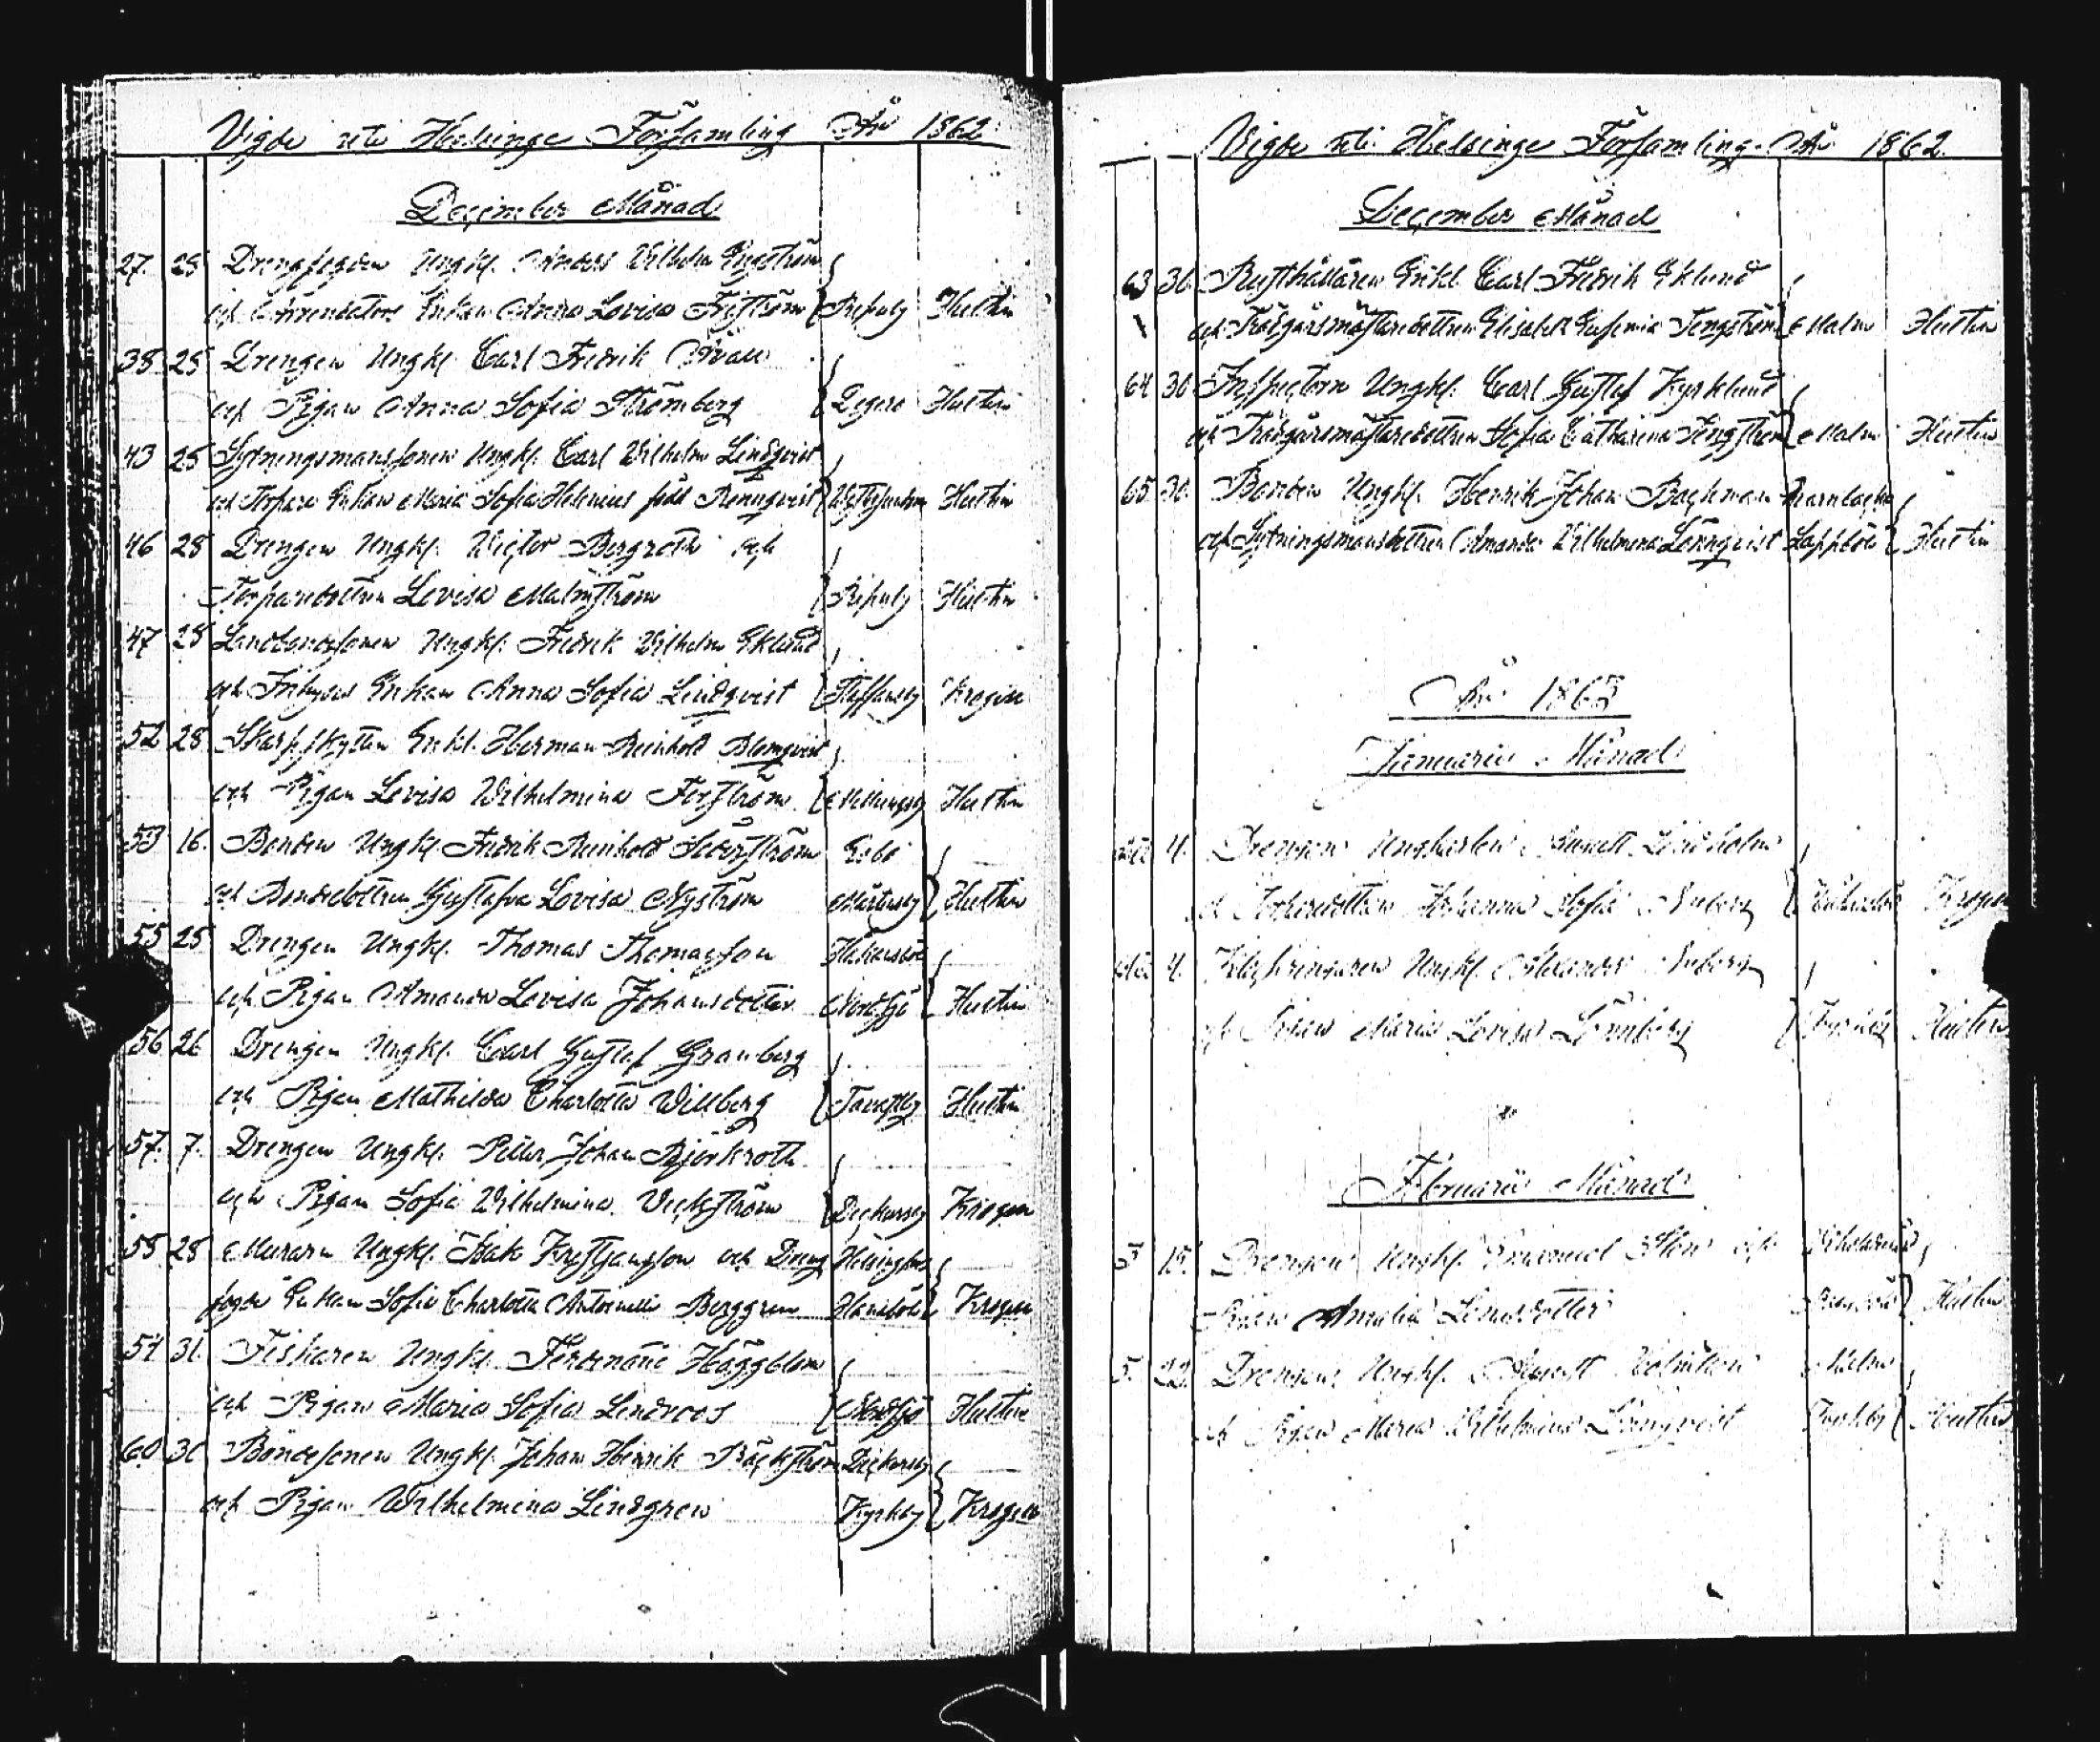 Vigde uti Helsinge Församling År 1862
December Månad
27. 28 Drengfogden Ungkl. Anders Wilhelm Engström
och Arrendators Enkan Anna Lovisa Friström Hultin
38 25 Drengen Ungkl. Carl Fredrik
och Pigan Anna Sofia Strömberg Degerö Hultin
43 25 Sytningsmanssonen Ungkl. Carl Wilhelm Lindqvist
och Torpare Enkan Maria Sofia Helenius född Rennqvist Hultin
46 28 Drengen Ungkl. Victor Bergroth och
Torparedottren Lovisa Malmström Hultin
47 28 Landbondesonen Ungkl. Fredrik Wilhelm Eklund
och Inhyses Enkan Anna Sofia Lindqvist Staffansby Krogen
52 28 Skarpskytten Enkl. Herman Reinhold Blomqvist
och Pigan Lovisa Wilhelmina Forström Mellungsby Hultin
53 16. Bonden Ungkl. Fredrik Reinhold Söderström Esbo
och Bondedottren Gustafva Lovisa Nyström Mårtensby Hultin
55 25 Drengen Ungkl. Thomas Thomasson Håkansböle
och Pigan Amanda Lovisa Johansdotter Nordsjö Hultin
56 26 Drengen Ungkl. Carl Gustaf Granberg
och Pigan Mathilda Charlotta Willberg Tavastby Hultin
57. 7. Drengen Ungkl. Petter Johan Björkroth
och Pigan Sofia Wilhelmina Weckström Dickursby Krogen
58 28 Muraren Ungkl. Isak Kristjansson och Dreng Helsingfors
fogde Enkan Sofia Charlotta Antoinette Berggren Hanaböle Krogen
59 31. Fiskaren Ungkl. Ferdinand Häggblom
och Pigan Maria Sofia Lindroos Nordsjö Hultin
60 30 Bondesonen Ungkl. Johan Henrik Träskström Dickursby
och Pigan Wilhelmina Lindgren Kyrkby Krogen
Vigde uti Helsinge Församling År 1862.
December Månad
63 30. Rusthållaren Enkl. Carl Fredrik Eklund
och Trädgårsmästaredottren Elisabeth Eufemia Tengström Malm Hultin
64 30 Inspectorn Ungkl. Carl Gustaf Kyrklund
och Trädgårsmästaredottren Sofia Catharina Tengström Malm Hultin
65 30. Bonden Ungkl. Henrik Johan Backman
och Sytningsmansdottren Amanda Wilhelmina Lönnqvist Lappböle Hultin
År 1863
Januarii Månad
4. Drengen Ungkarlen August Lindholm
och Torparedottren Johanna Sofia Krogen
4. Ungkl. Alexander
och Pigan Maria Lovisa Lönnberg Hultin
Februarii Månad
5 15. Drengen Ungkl. Emanuel och
Pigan Amalia Hultin
5. 22. Drengen Ungkl. August Malm
och Pigan Maria Wilhelmina Lönnqvist Hultin